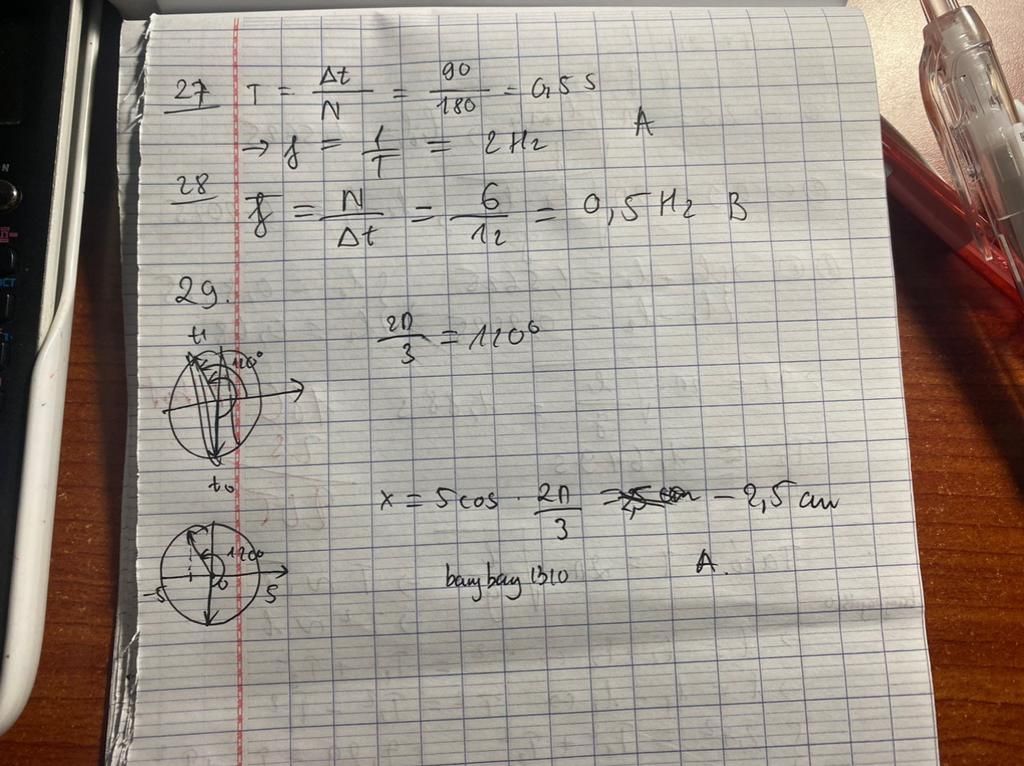 27 T = Δt/N = 90/180 = 0,5 s
→ f = 1/T = 2 Hz A
28 f = N/Δt = 6/12 = 0,5 Hz B
29.
2π/3 = 120°
t1
120°
t0
x = 5 cos . 2π/3 = - 2,5 cm
120°
-5 0 5
baybay1310
A.